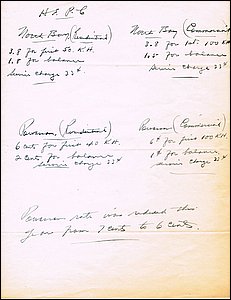 H.E.P.C
North Bay (Residential)
3.8 for first 50 K.H.
1.8 for balance
service charge 33¢
North Bay (Commercial)
3.8 for 1st 100 KH
1.5 for balance
service charge 33¢
Powassan (Residential)
6 cents for first 40 K.H.
2 cents for balance
service charge 33¢
Powassan (Commercial)
6¢ for first 100 KH
1¢ for balance
service charge 33¢
Powassan rate was reduced this
year from 7 cents to 6 cents.